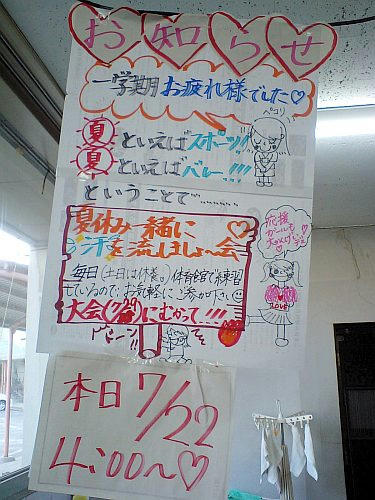 お知らせ
一学期お疲れ様でした♡
ペコリ
夏といえばスポーツ!!
夏といえばバレー!!!
ということで……
夏休み一緒に♡
汗を流しましょ〜会
毎日(土日は休養。)体育館で練習
しているので、お気軽にご参加下さい
にむかって!!!
応援
ガールも
LOVE
本日 7/22
4:00〜♡